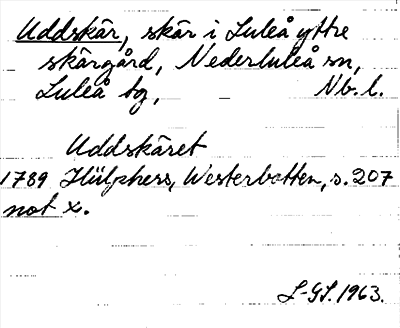 Uddskär, skär i Luleå yttre
skärgård, Nederluleå sn,
Luleå tg, Nb. l.
Uddskäret
1789 Hülphers, Westerbotten, s. 207
not x.
L-GL. 1963.